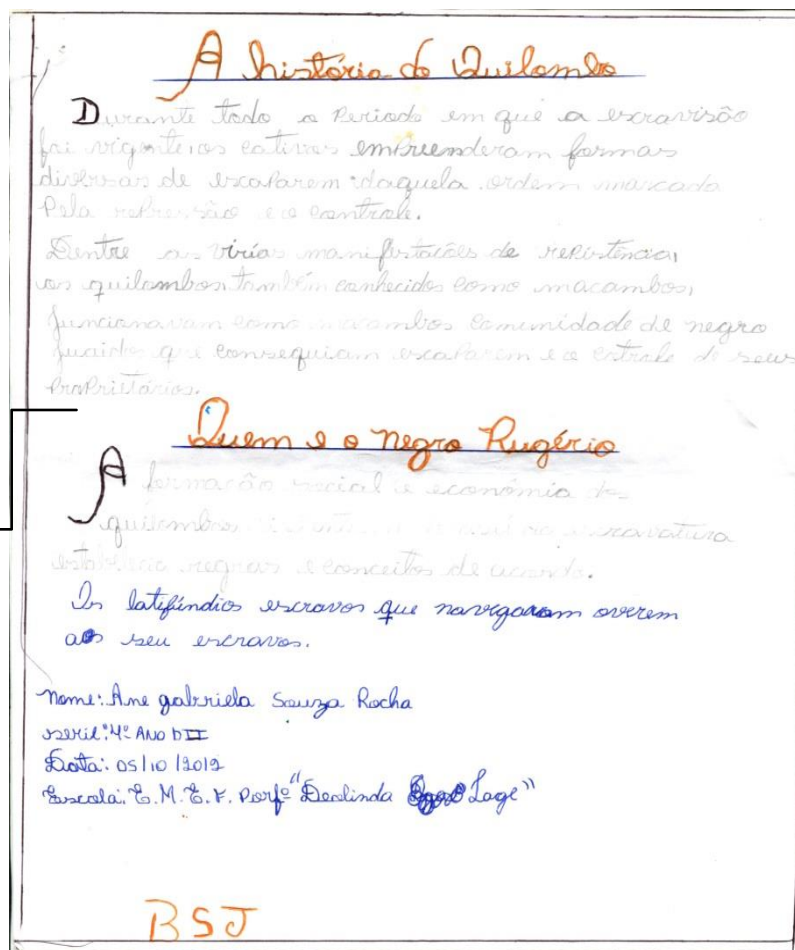 A história do Quilombo
Durante todo o Periodo em que a escravisão
foi vigente, os cativos empreenderam formas
diversas de escaparem daquela ordem marcada
Pela repressão e o controle.
Dentre as várias manifestações de resistência,
os quilombos também conhecidos como macambos,
funcionavam como macambos comunidade de negro
que conseguiam escaparem e o cotrole de seus
proprietários.
Quem e o negro Rugério
A formação social e economia
quilombos escravatura
regras e conceitos de acordo.
Os latifúndios escravos que navegavam overem
aos seu escravos.
nome: Ane gabriela Souza Rocha
serie: 4º Ano DII
Data: 05/10/2012
Escola: E. M. E. F. Porfº "Deolinda Lage"
BSJ